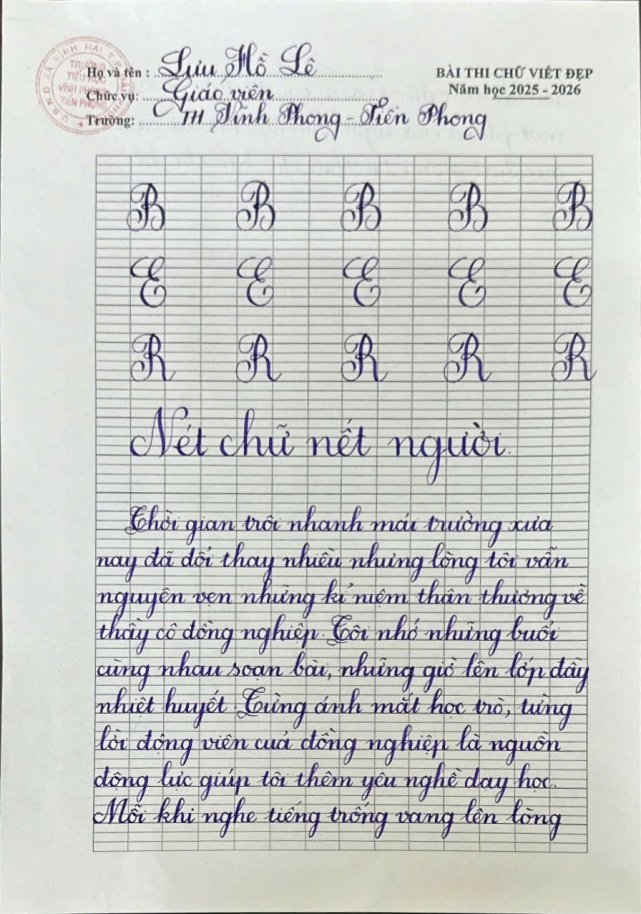 Họ và tên : Lưu Hồ Lê
Chức vụ: Giáo viên
Trường: TH Vĩnh Phong - Tiền Phong
BÀI THI CHỮ VIẾT ĐẸP
Năm học 2025 - 2026
TRƯỜNG
TIỂU HỌC
VĨNH PHONG
TIỀN PHONG
B B B B B
E E E E E
R R R R R
Nét chữ nết người.
Thời gian trôi nhanh mái trường xưa
nay đã đổi thay nhiều nhưng lòng tôi vẫn
nguyên vẹn những kỉ niệm thân thương về
thầy cô đồng nghiệp. Tôi nhớ những buổi
cùng nhau soạn bài, những giờ lên lớp đầy
nhiệt huyết. Từng ánh mắt học trò, từng
lời động viên của đồng nghiệp là nguồn
động lực giúp tôi thêm yêu nghề dạy học.
Mỗi khi nghe tiếng trống vang lên lòng